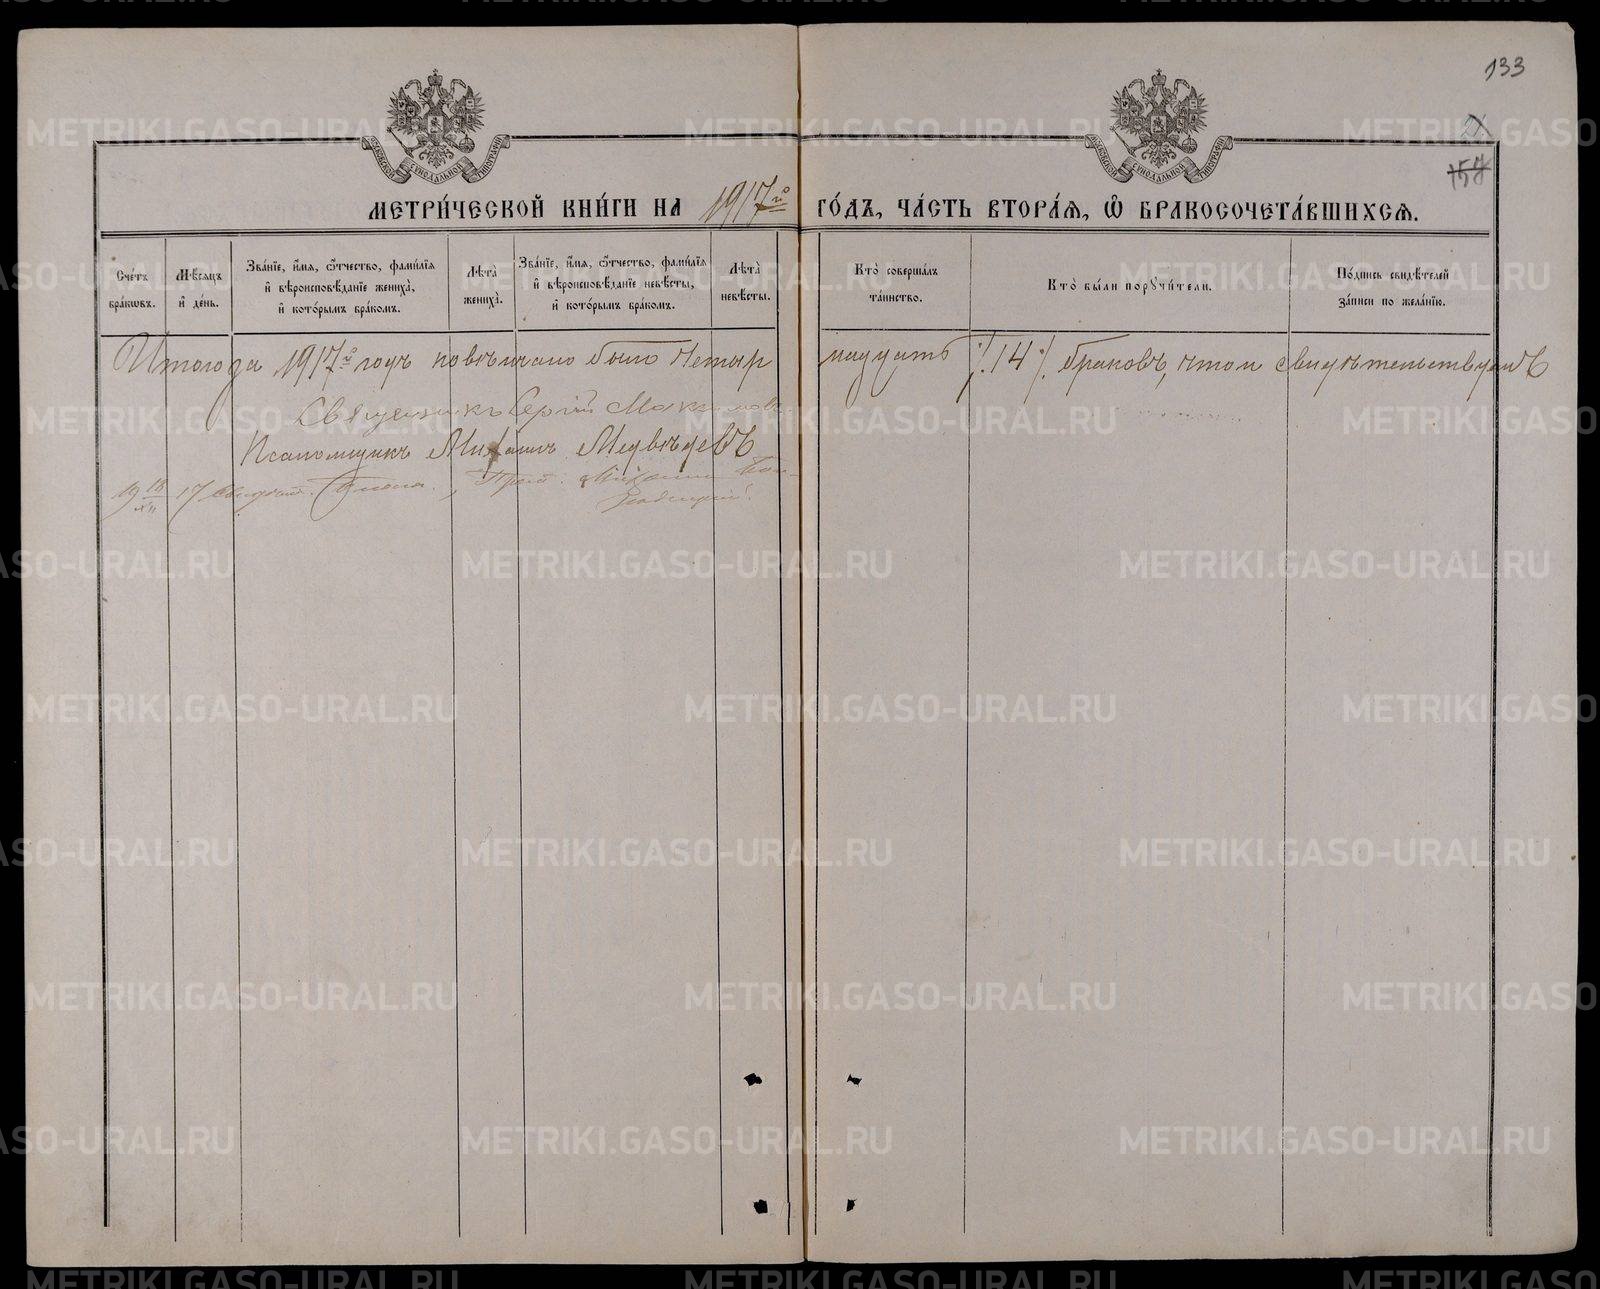 133
157
МОСКОВСКОЙ СУНОДАЛЬНОЙ ТИПОГРАФІИ
МОСКОВСКОЙ СУНОДАЛЬНОЙ ТИПОГРАФІИ
МЕТРИ́ЧЕСКОЙ КНИ́ГИ НА 1917го ГО́ДЪ, ЧА́СТЬ ВТОРА́Ѧ, Ѡ҆ БРАКОСОЧЕТА́ВШИХСѦ.
Сче́тъ бра́кѡвъ.
Мѣ́сѧцъ и҆ де́нь.
Зва́нїе, и҆́мѧ, ѻ҆́тчество, фами́лїѧ и҆ вѣроисповѣ́данїе жениха̀, и҆ кото́рымъ бра́комъ.
Лѣта̀ жениха̀.
Зва́нїе, и҆́мѧ, ѻ҆́тчество, фами́лїѧ и҆ вѣроисповѣ́данїе невѣ́сты, и҆ кото́рымъ бра́комъ.
Лѣта̀ невѣ́сты.
Кто̀ соверша́лъ та́инство.
Кто̀ бы́ли порꙋчи́тели.
По́дпись свидѣ́телей за́писи по жела́нїю.
Итого за 1917й годъ повѣнчано было Четыр надцать /.14./ браковъ, что и свидѣтельствуемъ
Священникъ Сергій Максимовъ
Псаломщикъ Михаилъ Медвѣдевъ
19 18/XII 17 Прот. Михаилъ
METRIKI.GASO-URAL.RU